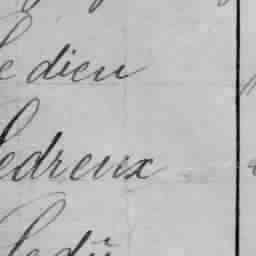 Le dieu
Ledreux
Ledū